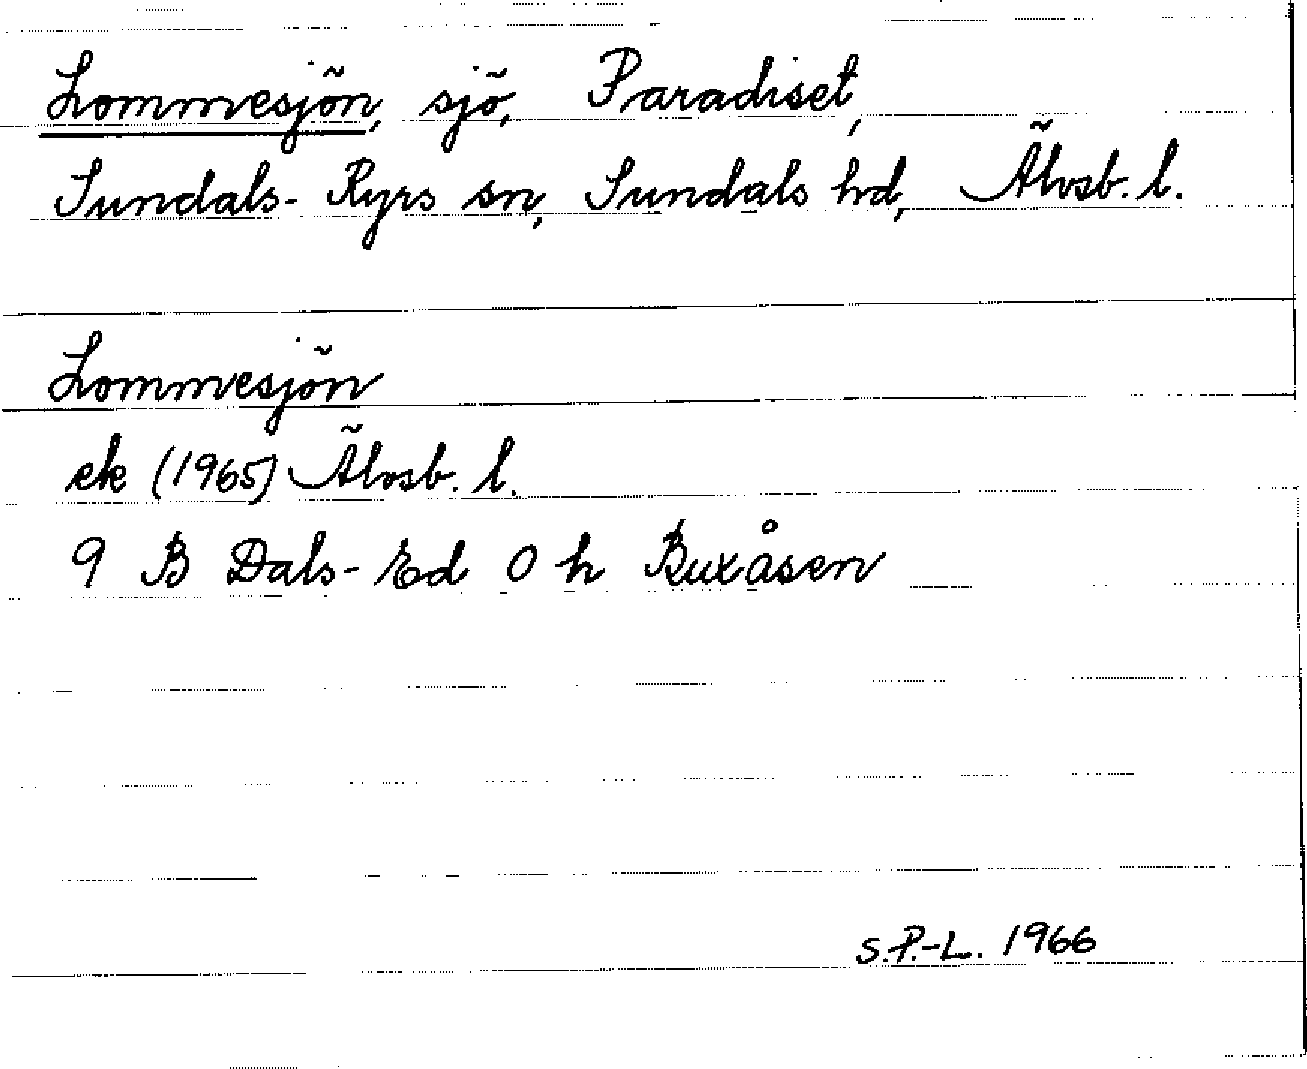 Lommesjön, sjö, Paradiset,
Sundals-Ryrs sn, Sundals hd, Älvsb. l.
Lommesjön
ek (1965) Älvsb. l.
9 B Dals-Ed 0 h Buxåsen
S.P.-L. 1966